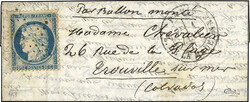 Par Ballon monté
Madame Chevalier
26 Rue de la
Trouville sur mer
(Calvados)